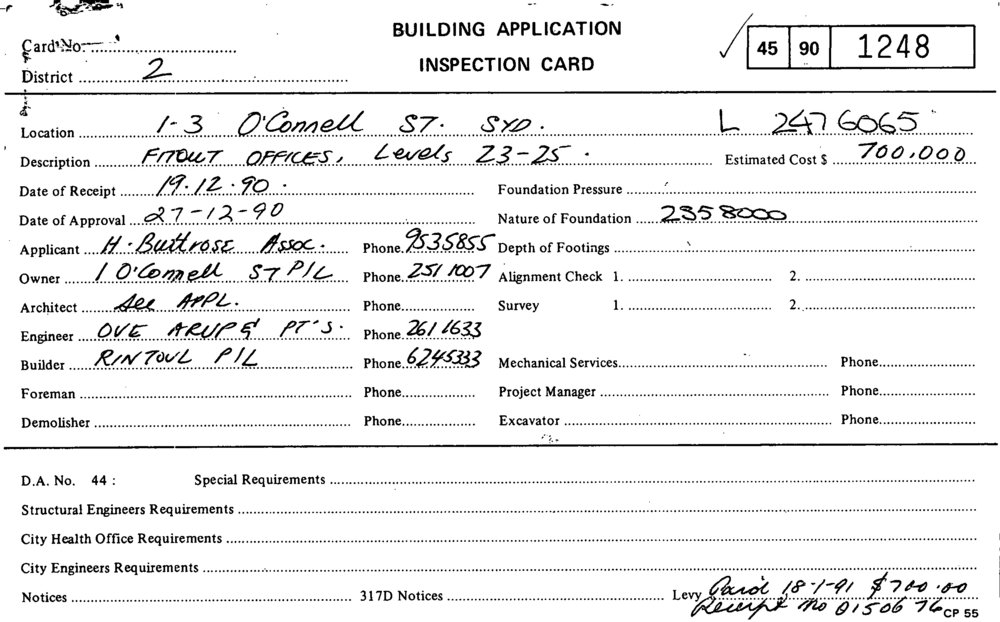 BUILDING APPLICATION
INSPECTION CARD
45 90 1248
Card No
District 2
Location 1-3 O'Connell ST. SYD. L 2476065
Description FITOUT OFFICES, Levels 23-25. Estimated Cost $ 700,000
Date of Receipt 19.12.90. Foundation Pressure
Date of Approval 27-12-90 Nature of Foundation 2358000
Applicant H. Buttrose Assoc. Phone 9535855 Depth of Footings
Owner 1 O'Connell ST P/L Phone 251 1007 Alignment Check 1. 2.
Architect See APPL. Phone Survey 1. 2.
Engineer OVE ARUP & PT'S. Phone 261 1633
Builder RINTOUL P/L Phone 6245333 Mechanical Services Phone
Foreman Phone Project Manager Phone
Demolisher Phone Excavator Phone
D.A. No. 44 : Special Requirements
Structural Engineers Requirements
City Health Office Requirements
City Engineers Requirements
Notices 317D Notices Levy Paid 18-1-91 $700.00
Receipt no 0150676 CP 55